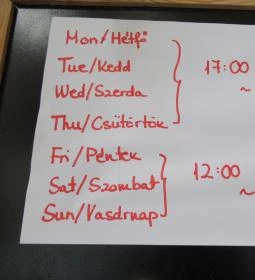 Mon/Hétfő
Tue/Kedd 17:00
Wed/Szerda ~
Thu/Csütörtök
Fri/Péntek
Sat/Szombat 12:00
Sun/Vasárnap ~